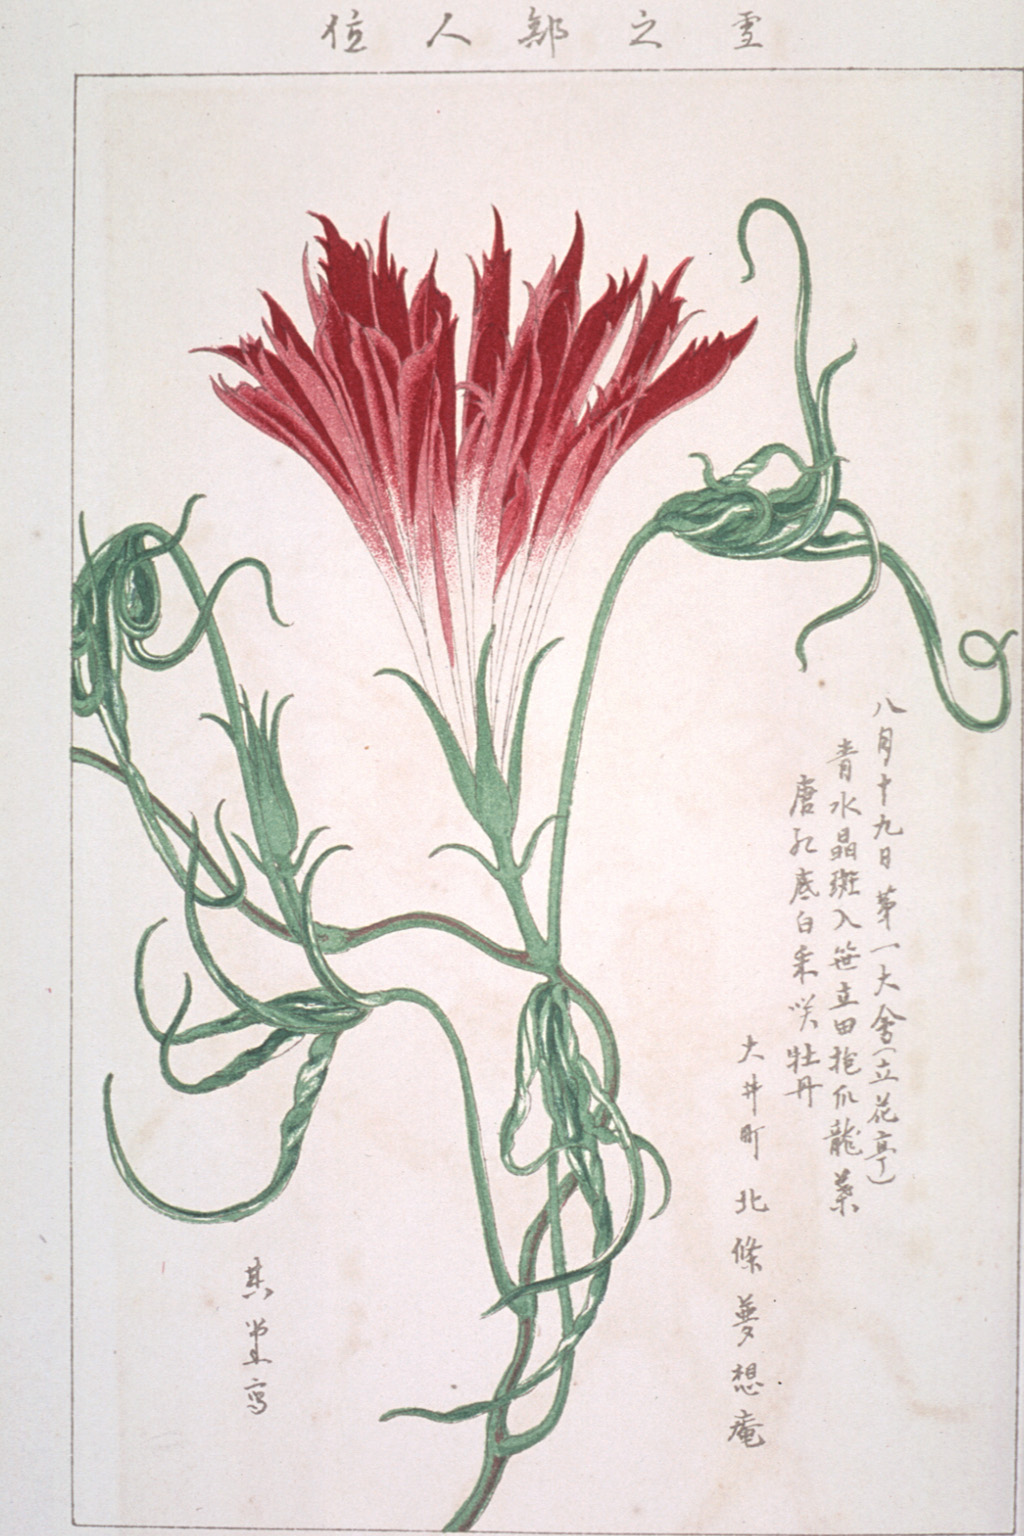 雪之部人位
八月十九日第一大會(立花亭)
青水晶斑入笹立田抱爪龍葉
唐紅底白采咲牡丹
大井町 北條夢想庵
其堂寫